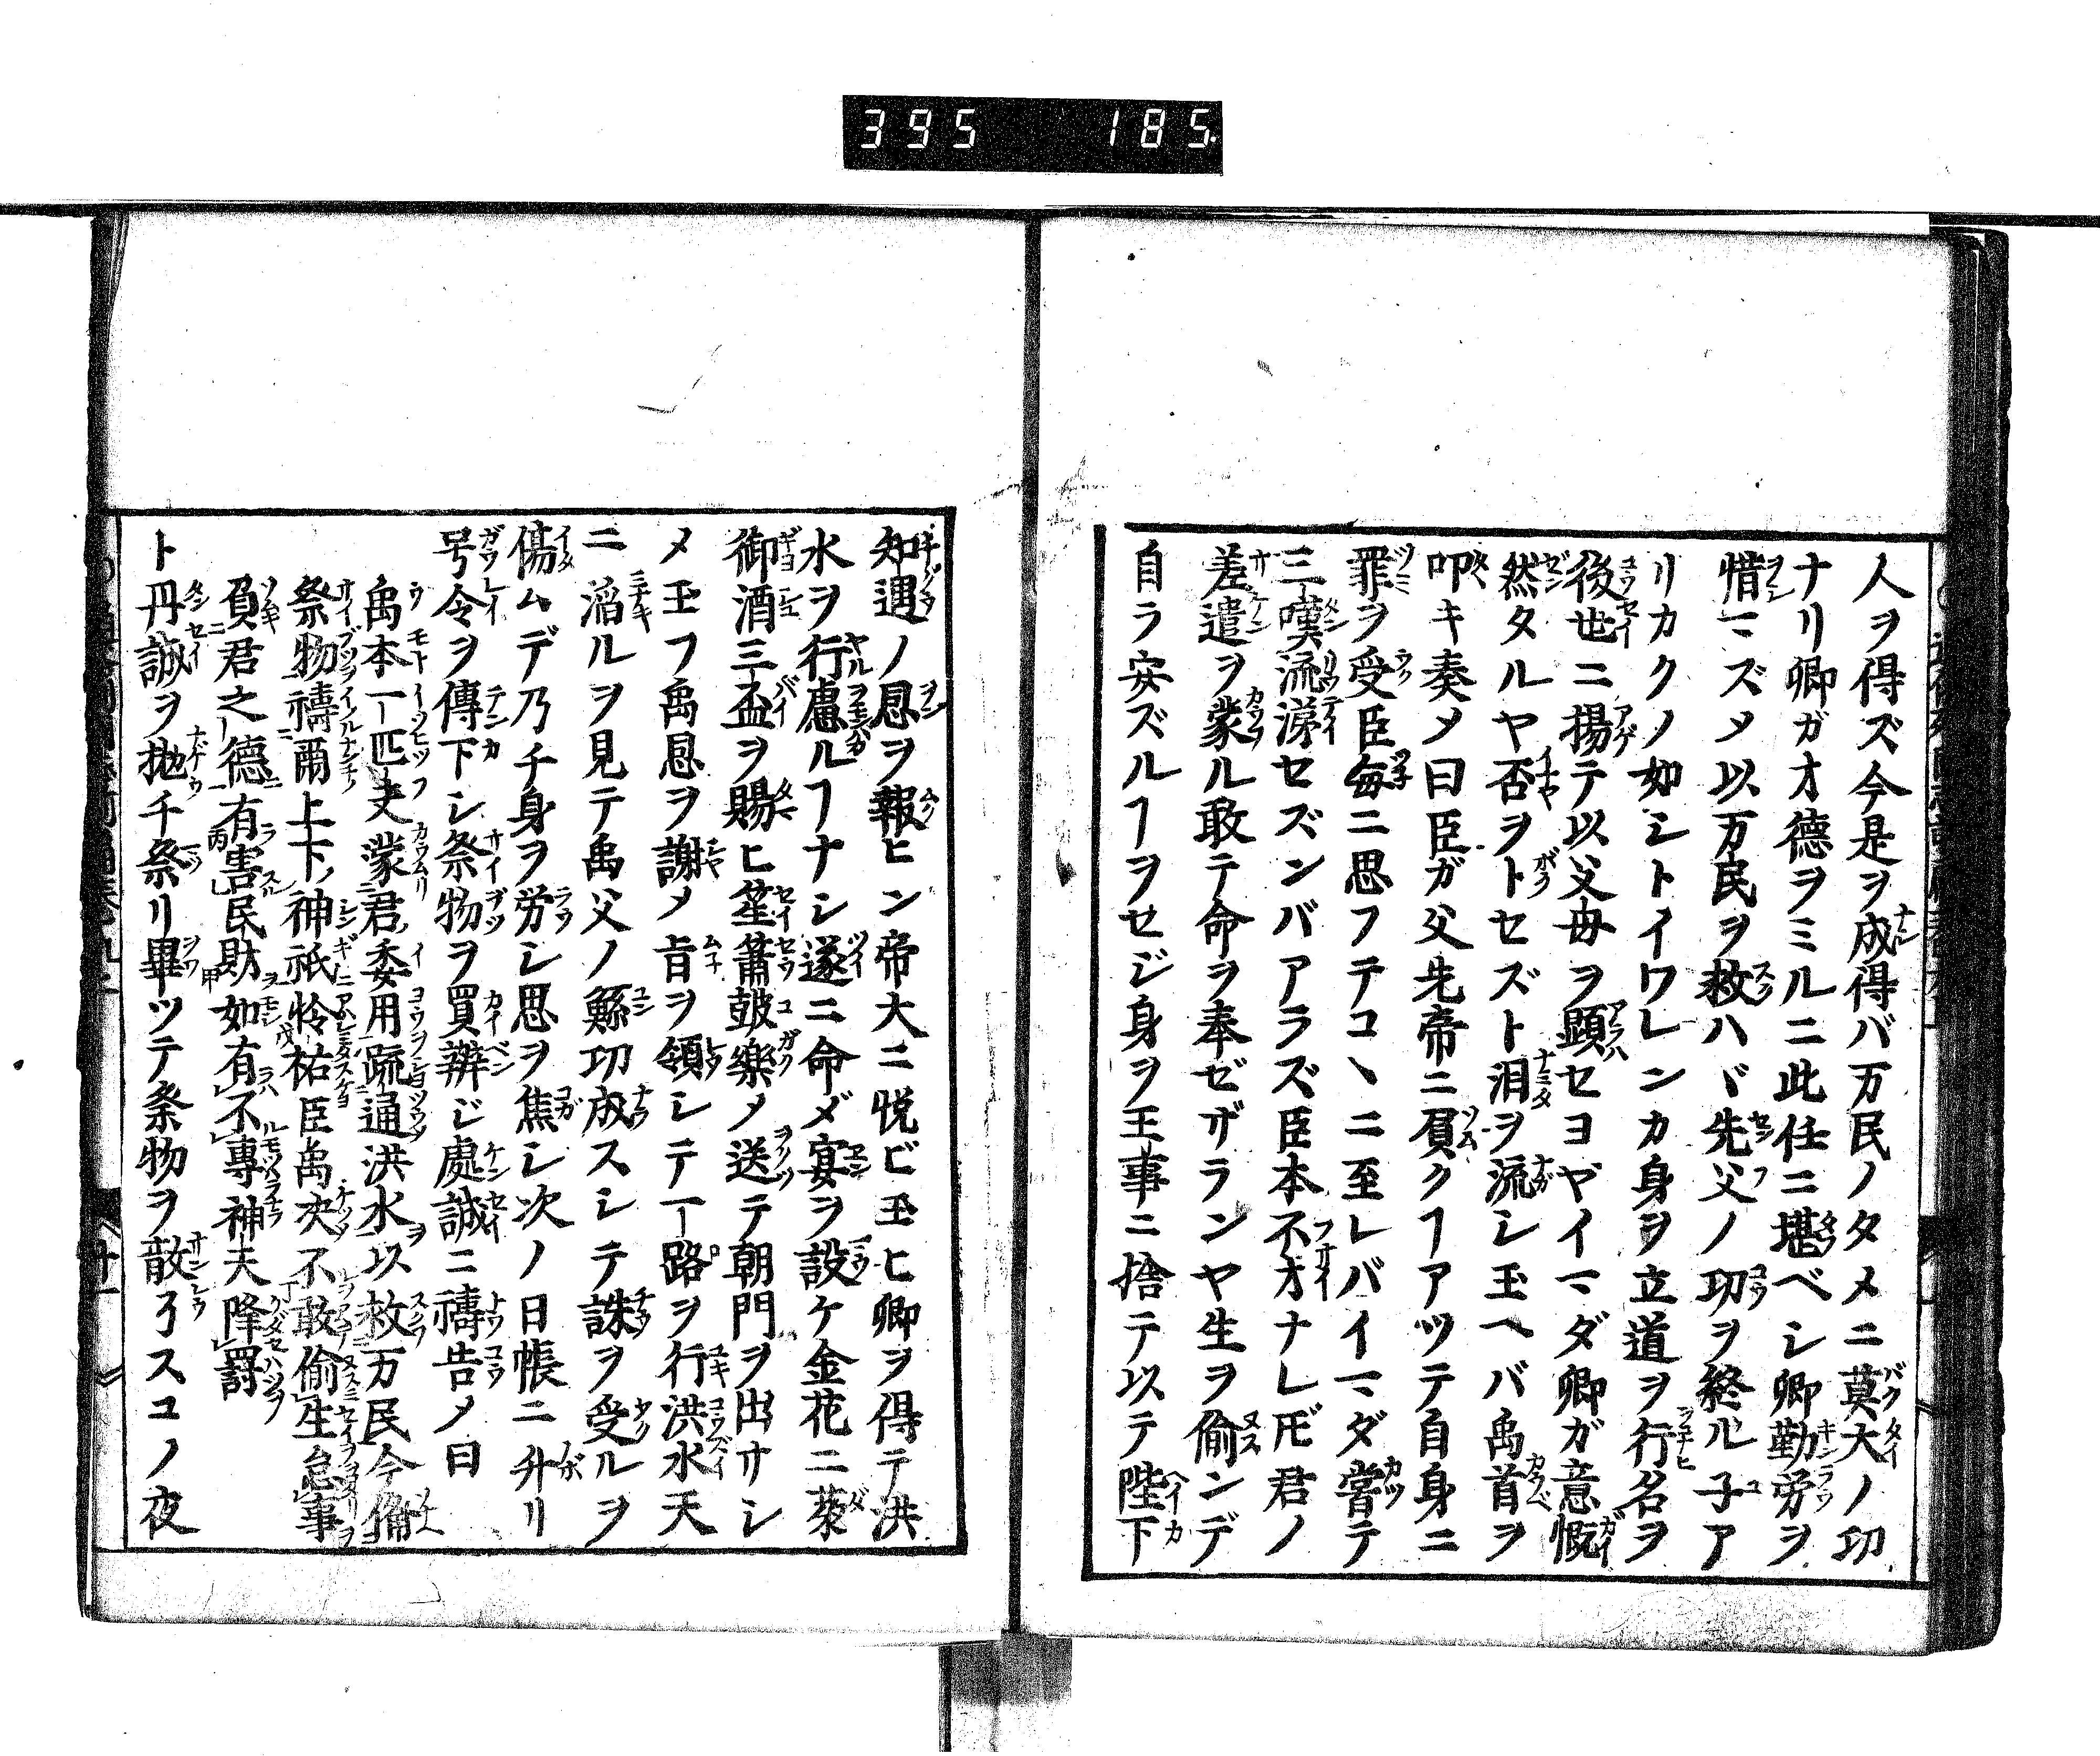 395 185
人ヲ得ズ今是ヲ成得バ万民ノタメニ莫大ノ功
ナリ卿ガオ徳ヲミルニ此任ニ堪ベシ卿勤労ヲ
惜マズメ以万民ヲ救ハヾ先父ノ功ヲ終ル子ア
リカクノ如シトイワレンカ身ヲ立道ヲ行名ヲ
後世ニ揚テ以父母ヲ顕セヨヤイマダ卿ガ意慨
然タルヤ否ヲトセズト泪ヲ流シ玉ヘバ禹首ヲ
叩キ奏メ曰臣ガ父先帝ニ負クヿアツテ自身ニ
罪ヲ受臣毎ニ思フテコヽニ至レバイマダ嘗テ
三嘆流涕セズンバアラズ臣本不才ナレ𪜈君ノ
差遣ヲ蒙ル敢テ命ヲ奉ゼザランヤ生ヲ偷ンデ
自ラ安ズルヿヲセジ身ヲ王事ニ捨テ以テ陛下
知遇ノ恩ヲ報ヒン帝大ニ悦ビ玉ヒ卿ヲ得テ洪
水ヲ行慮ルヿナシ遂ニ命メ宴ヲ設ケ金花ニ朶
御酒三盃ヲ賜ヒ笙簫鼓樂メ送テ朝門ヲ出サシ
メ玉フ禹恩ヲ謝メ旨ヲ領シテ一路ヲ行洪水天
ニ滔ルヲ見テ禹父ノ鯀功成スシテ誅ヲ受ルヲ
傷ムデ乃チ身ヲ労シ思ヲ焦シ次ノ日帳ニ升リ
号令ヲ傳下シ祭物ヲ買辨ジ處誠ニ禱告メ曰
禹本一匹夫蒙君委用疏通洪水以救万民今備
祭物禱爾上下神祇怜祐臣禹决不敢偷生怠事
負君之德有害民財如有不專神天降罰
ト丹誠ヲ抛チ祭リ畢ツテ祭物ヲ散ラスコノ夜